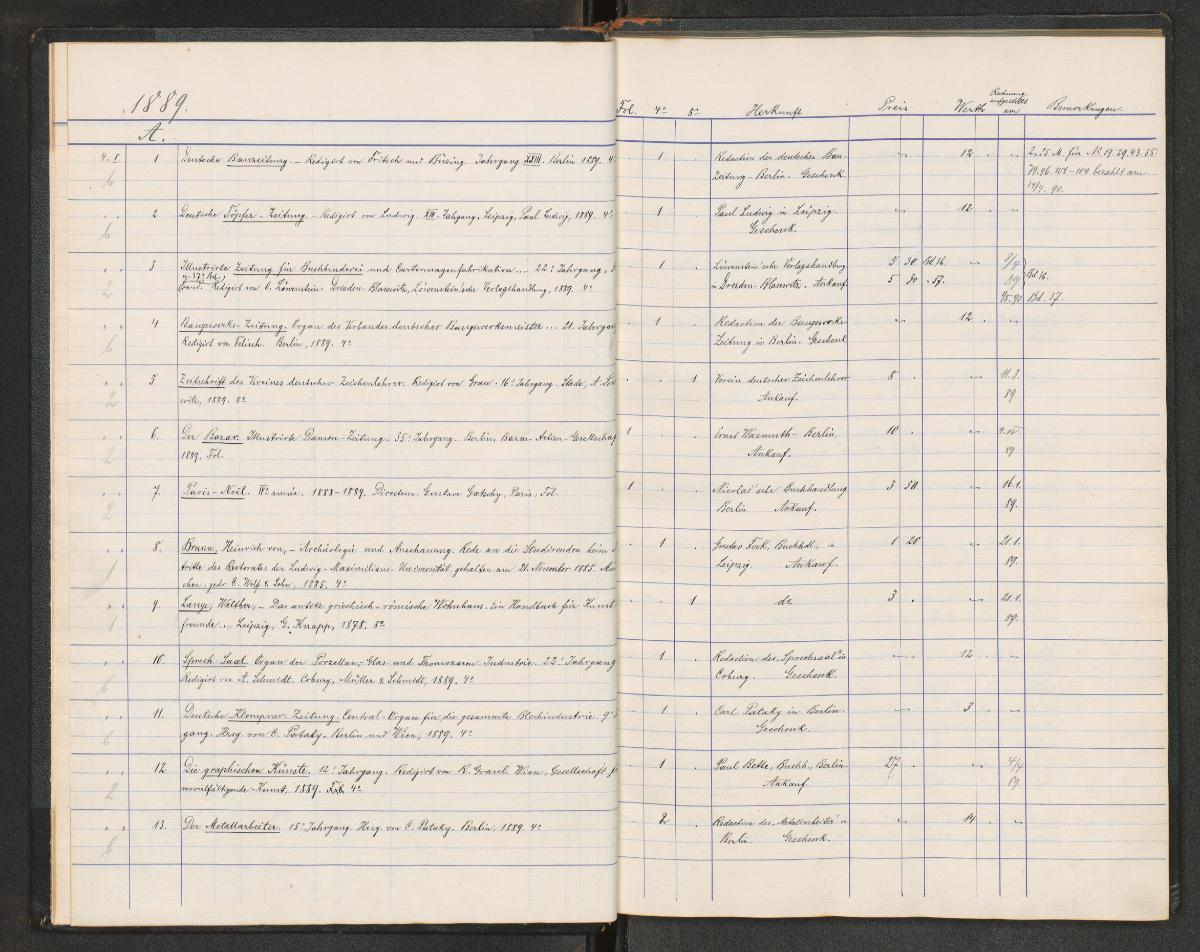 1889.
A.
Fol. 4° 8° Herkunft Preis Werth Rechnung aufgestellt am Bemerkungen.
4. I. 1 Deutsche Bauzeitung. – Redigirt von Fritsch und Büsing. Jahrgang XXIII. Berlin 1889. 4°
6
1 Redaction der deutschen Bau- 12 2.25 M. für No 19.29.43.55.
Zeitung – Berlin. Geschenk 79.96.102–104 bezahlt am
14/4. 90.
2 Deutsche Töpfer-Zeitung. – Redigirt von Ludwig. XIII. Jahrgang. Leipzig, Paul Ludwig, 1889. 4°
6
1 Paul Ludwig in Leipzig. 12
Geschenk.
3 Illustrirte Zeitung für Buchbinderei und Cartonnagenfabrikation... 22r Jahrgang,
u. 17r Bd.
2 Band. Redigirt von O. Löwenstein. Dresden-Blasewitz, Löwenstein'sche Verlagshandlung, 1889. 4°
1 Löwenstein'sche Verlagshandlung 5 30 Bd 16.
in Dresden-Blasewitz. Ankauf 5 30 " 17. 89 Bd 16.
Bd. 17.
4 Baugewerks-Zeitung. Organ des Verbandes deutscher Baugewerksmeister ... 21. Jahrgan
6 Redigirt von Felisch. Berlin, 1889. 4°
1 Redaction der Baugewerks- 12
Zeitung in Berlin. Geschenk
5 Zeitschrift des Vereines deutscher Zeichenlehrer. Redigirt von Grau. 16r Jahrgang. Stade, A.
2 1889. 8°
1 Verein deutscher Zeichenlehrer 8 11.3.
Ankauf. 89.
6. Der Bazar. Illustrirte Damen-Zeitung. 35r Jahrgang. Berlin, Bazar-Actien-Gesellschaf
2 1889. Fol.
1 Ernst Wasmuth – Berlin. 10
Ankauf. 89
7. Paris-Noël. IVe année. 1888–1889. Directeur: Gustave Goetschy, Paris, Fol.
2
1 Nicolai'sche Buchhandlung 3 50 16.1.
Berlin Ankauf. 89.
8. Brunn, Heinrich von, – Archäologie und Anschauung. Rede an die Studirenden beim
1 tritte des Rectorates der Ludwig-Maximilians-Universität, gehalten am 21. November 1885. Mün
chen, gedr. C. Wolf & Sohn, 1885. 4°
1 Gustav Fock, Buchhdl., in 1 20 21.1.
Leipzig. Ankauf. 89.
9. Lange, Walther, – Das antike griechisch-römische Wohnhaus. Ein Handbuch für Kunst
1 freunde ... Leipzig, G. Knapp, 1878. 8°
1 do 3 21.1.
89.
10. Sprech-Saal. Organ der Porzellan-, Glas- und Thonwaaren Industrie. 22r Jahrgang
6 Redigirt von A. Schmidt. Coburg, Müller & Schmidt, 1889. 4°
1 Redaction des „Sprechsaal" in 12
Coburg. Geschenk.
11. Deutsche Klempner-Zeitung. Central-Organ für die gesammte Blechindustrie. 9r
6 gang. Hrsg. von C. Pataky. Berlin und Wien, 1889. 4°
1 Carl Pataky in Berlin. 3
Geschenk.
12 Die graphischen Künste. 12r Jahrgang. Redigirt von R. Graul. Wien, Gesellschaft f
2 vervielfältigende Kunst, 1889. 4°
1 Paul Bette, Buchh., Berlin 27 4/4
Ankauf. 89
13. Der Metallarbeiter. 15r Jahrgang. Hrsg. von C. Pataky. Berlin, 1889. 4°
6
2 Redaction des „Metallarbeiter" in 14
Berlin. Geschenk.